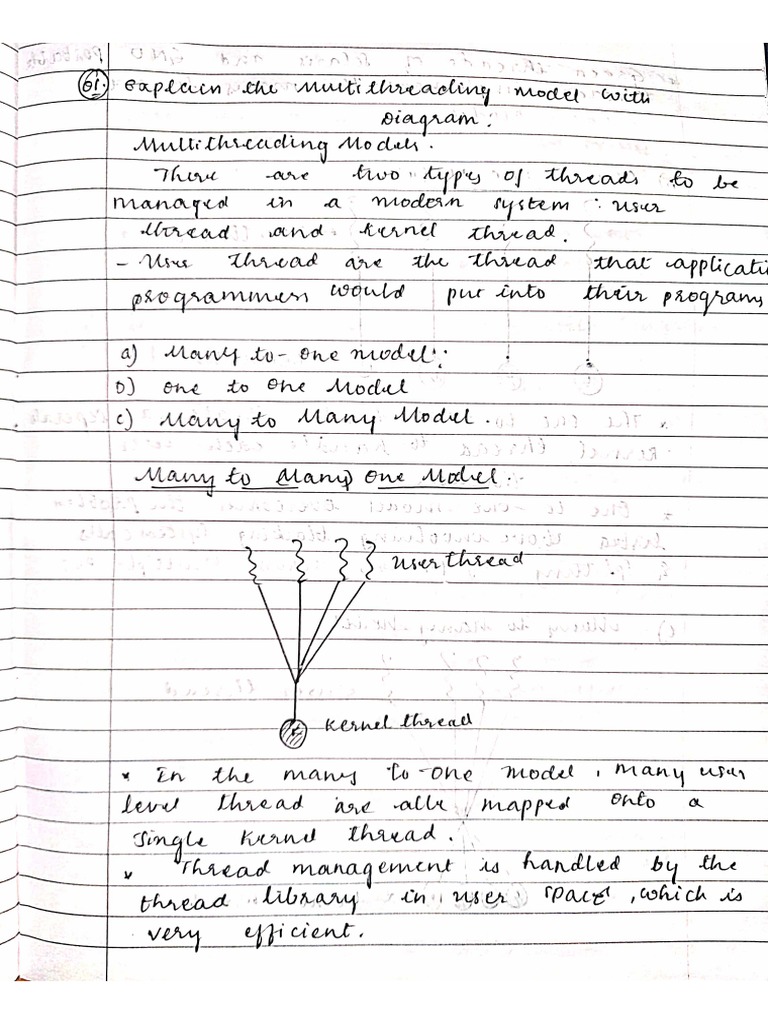 Q1. Explain the Multithreading model with
Diagram:
Multithreading Models.
There are two types of threads to be
managed in a modern system: user
thread and kernel thread.
- User thread are the thread that applicati
programmers would put into their programs
a) Many to-one model:
b) one to one Model
c) Many to Many Model.
Many to (Many) One Model.
user thread
kernel thread
* In the many to-one model, many user
level thread are alle mapped onto a
single kernel thread.
* Thread management is handled by the
thread library in user space, which is
very efficient.